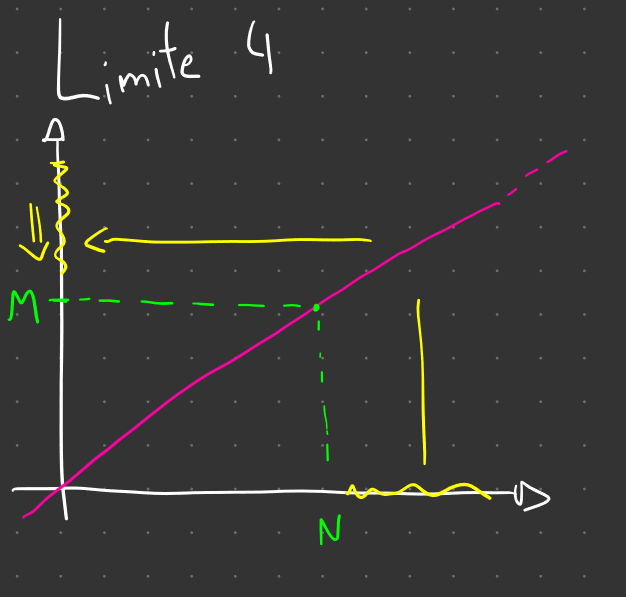 Limite 4
M
N